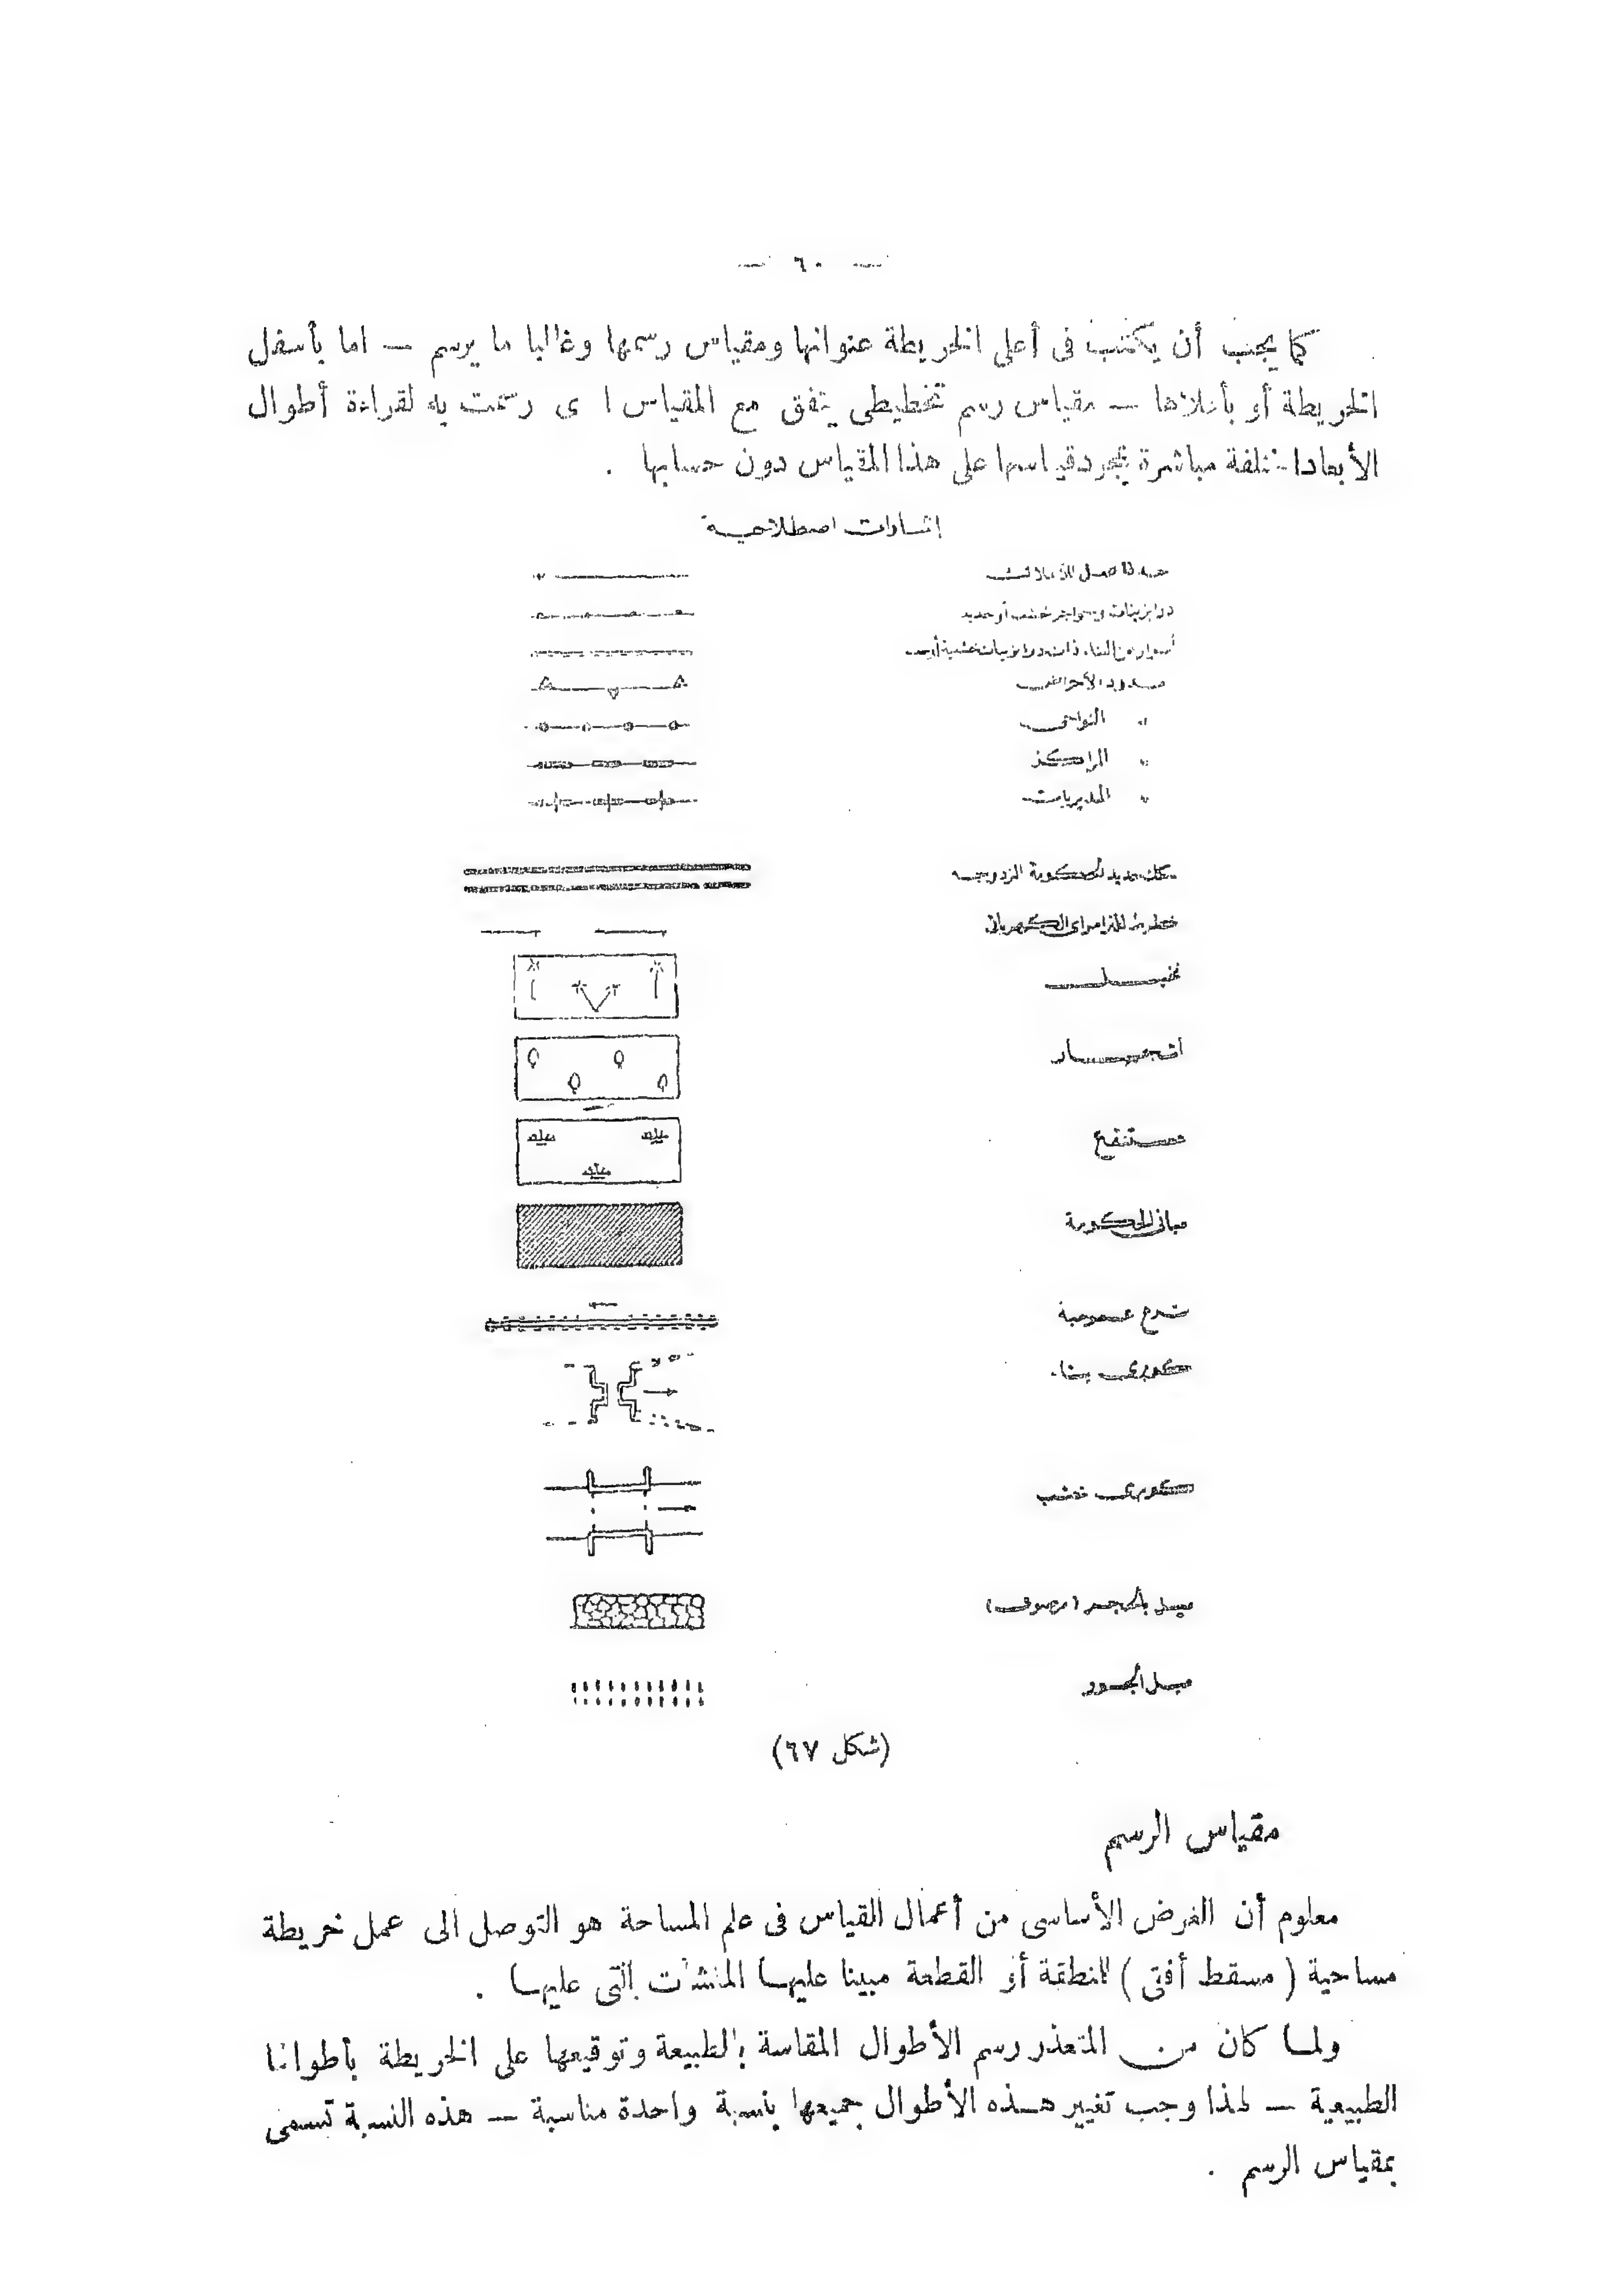 — ٦٠ —
كما يجب أن يكتب فى أعلى الخريطة عنوانها ومقياس رسمها وغالبا ما يرسم — اما بأسفل
الخريطة أو بأعلاها — مقياس رسم تخطيطى يتفق مع المقياس ا ى رسمت به لقراءة أطوال
الأبعاد مباشرة بمجرد قياسها على هذا المقياس دون حسابها .
إشارات اصطلاحية
درابزينات وحواجز خشب أو حديد
حدود الأحواض
» النواحى
» المراكز
» المديريات
سكك حديد الحكومة المزدوجه
الترامواى الكهربائى
نخيل
اشجار
مستنقع
مبانى الحكومة
ترع عمومية
كوبرى بناء
كوبرى خشب
ميل بالحجر (مرصوف)
ميل الجسور
(شكل ٦٧)
مقياس الرسم
معلوم أن الغرض الأساسى من أعمال القياس فى علم المساحة هو التوصل الى عمل خريطة
مساحية ( مسقط أفقى ) لمنطقة أو القطعة مبينا عليها المنشآت التى عليها .
ولما كان من المتعذر رسم الأطوال المقاسة بالطبيعة وتوقيعها على الخريطة بأطوالها
الطبيعية — لهذا وجب تغيير هذه الأطوال جميعها بنسبة واحدة مناسبة — هذه النسبة تسمى
بمقياس الرسم .